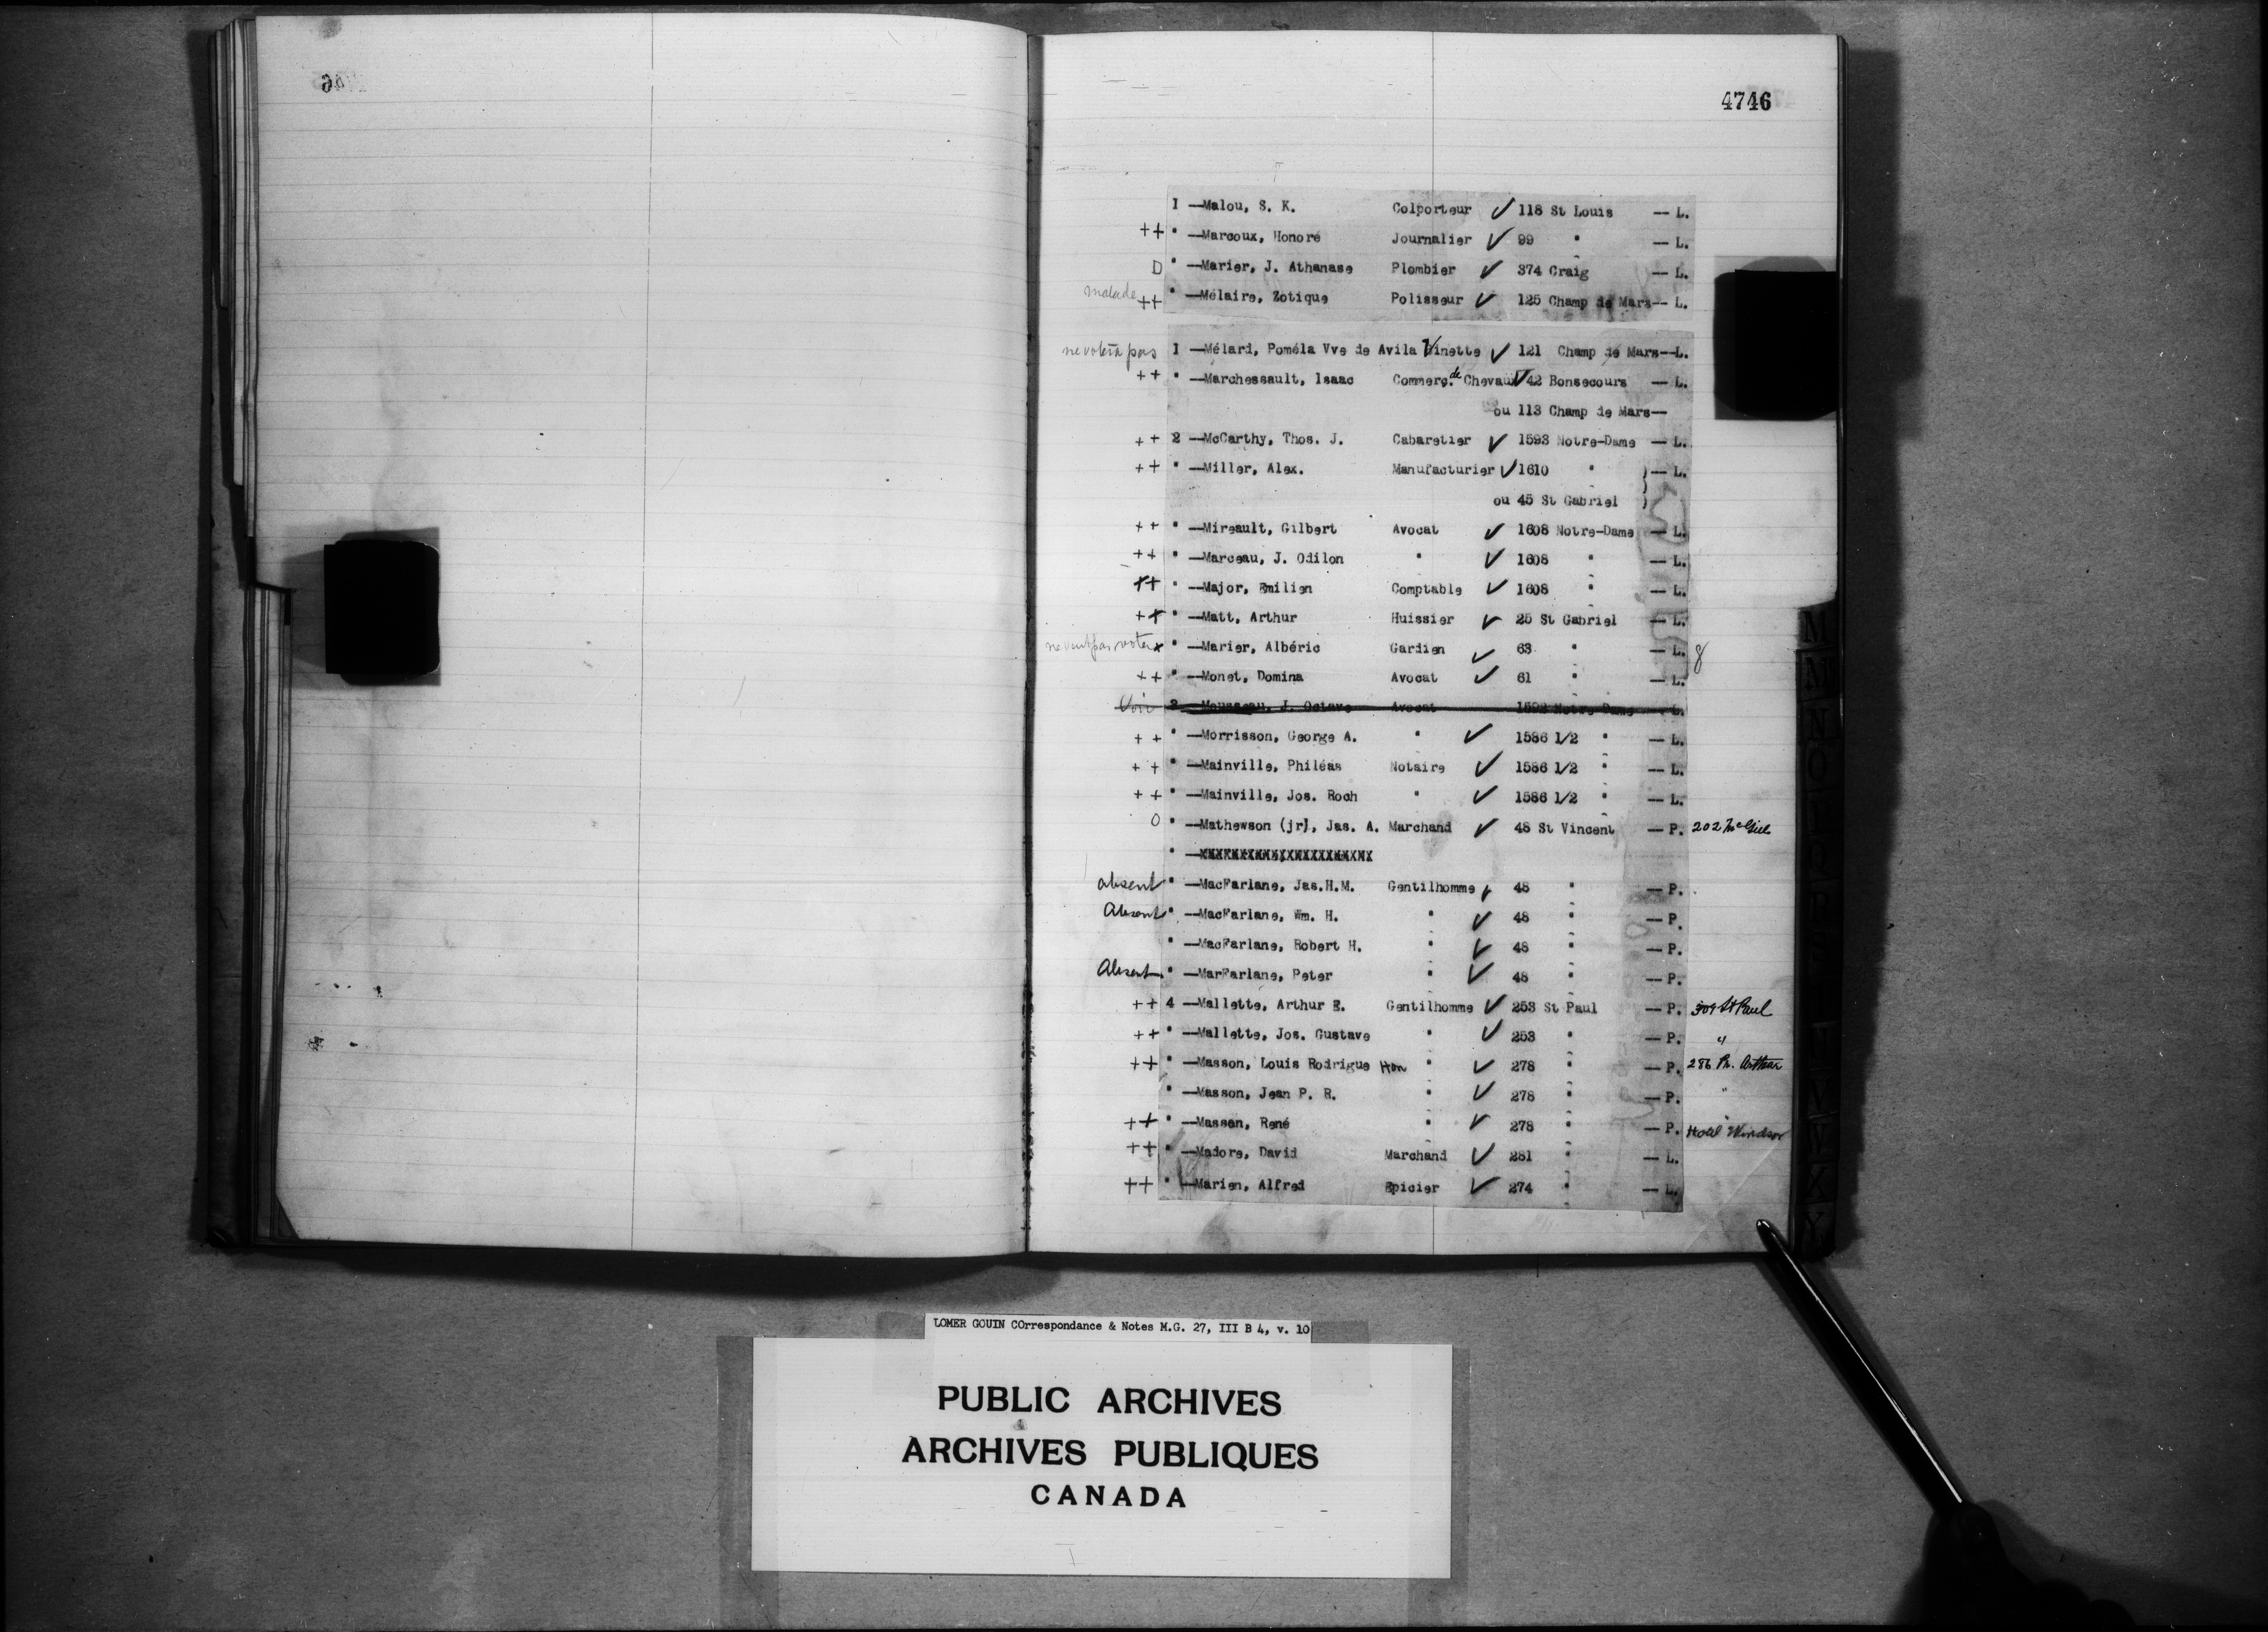 4746
1 —Malou, S. K. Colporteur ✓ 118 St Louis — L.
++ " —Marcoux, Honoré Journalier ✓ 99 " — L.
D " —Marier, J. Athanase Plombier ✓ 374 Craig — L.
malade ++ " —Mélaire, Zotique Polisseur ✓ 125 Champ de Mars— L.
ne votera pas 1 —Mélard, Poméla Vve de Avila Vinette ✓ 121 Champ de Mars--L.
++ " —Marchessault, Isaac Commerç. de Chevaux ✓ 42 Bonsecours — L.
ou 113 Champ de Mars—
++ 2 —McCarthy, Thos. J. Cabaretier ✓ 1593 Notre-Dame — L.
++ " —Miller, Alex. Manufacturier ✓ 1610 " )— L.
ou 45 St Gabriel )
++ " —Mireault, Gilbert Avocat ✓ 1608 Notre-Dame — L.
++ " —Marceau, J. Odilon " ✓ 1608 " — L.
++ " —Major, Emilien Comptable ✓ 1608 " — L.
++ " —Matt, Arthur Huissier ✓ 25 St Gabriel — L.
ne veut pas voter x " —Marier, Albéric Gardien ✓ 63 " — L. 8
++ " —Monet, Domina Avocat ✓ 61 " — L.
Voir 2 —Mousseau, J. Octave Avocat 1592 Notre-Dame — L.
++ " —Morrisson, George A. " ✓ 1586 1/2 " — L.
++ " —Mainville, Philéas Notaire ✓ 1586 1/2 " — L.
++ " —Mainville, Jos. Roch " ✓ 1586 1/2 " — L.
O " —Mathewson (jr), Jas. A. Marchand ✓ 48 St Vincent — P. 202 McGill
" —
absent " —MacFarlane, Jas.H.M. Gentilhomme ✓ 48 " — P.
Absent " —MacFarlane, Wm. H. " ✓ 48 " — P.
" —MacFarlane, Robert H. " ✓ 48 " — P.
Absent " —MarFarlane, Peter " ✓ 48 " — P.
++ 4 —Mallette, Arthur E. Gentilhomme ✓ 253 St Paul — P. 309 St Paul
++ " —Mallette, Jos. Gustave " ✓ 253 " — P. "
++ " —Masson, Louis Rodrigue Hon " ✓ 278 " — P. 286 Pr. Arthur
" —Masson, Jean P. R. " ✓ 278 " — P. "
++ " —Masson, René " ✓ 278 " — P. Hotel Windsor
++ " —Madore, David Marchand ✓ 281 " — L.
++ " —Marien, Alfred Epicier ✓ 274 " — L.
LOMER GOUIN COrrespondance & Notes M.G. 27, III B 4, v. 10
PUBLIC ARCHIVES
ARCHIVES PUBLIQUES
CANADA